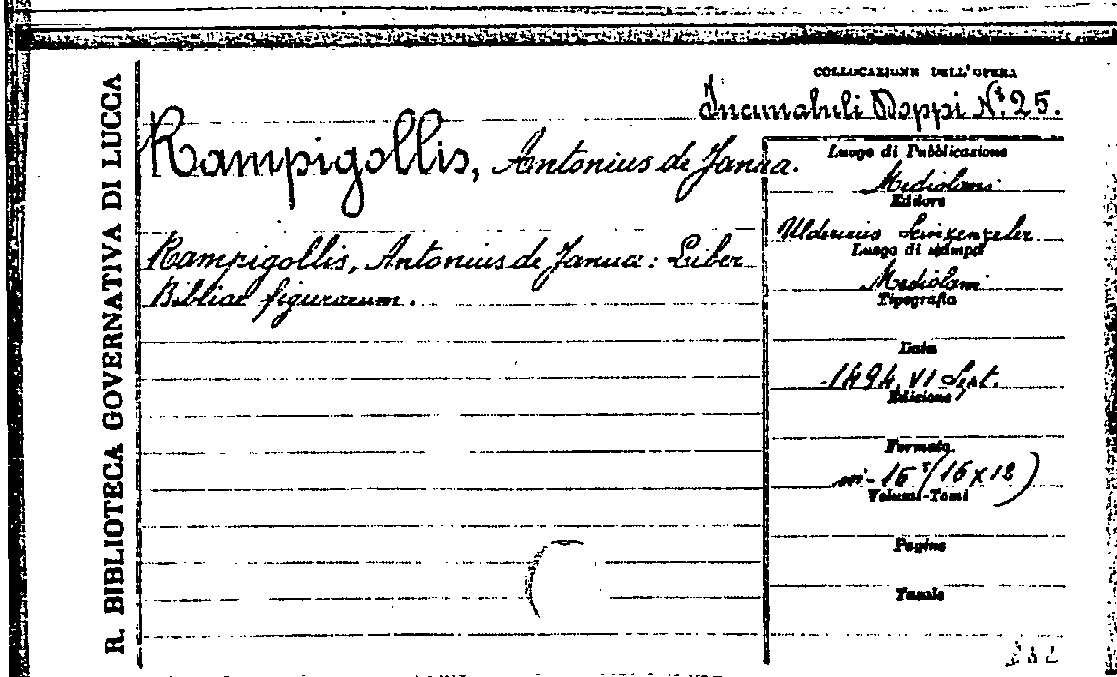 R. BIBLIOTECA GOVERNATIVA DI LUCCA
COLLOCAZIONE DELL'OPERA
Incunabuli Doppi N.º 25.
Rampigollis, Antonius de Janua.
Rampigollis, Antonius de Janua: Liber
Bibliae figurarum.
Luogo di Pubblicazione
Mediolani
Editore
Uldericus Scinzenzeler
Luogo di stampa
Mediolani
Tipografia
Data
1494, VI Sept.
Edizione
Formato
in-16º (16x12)
Volumi-Tomi
Pagine
Tavole